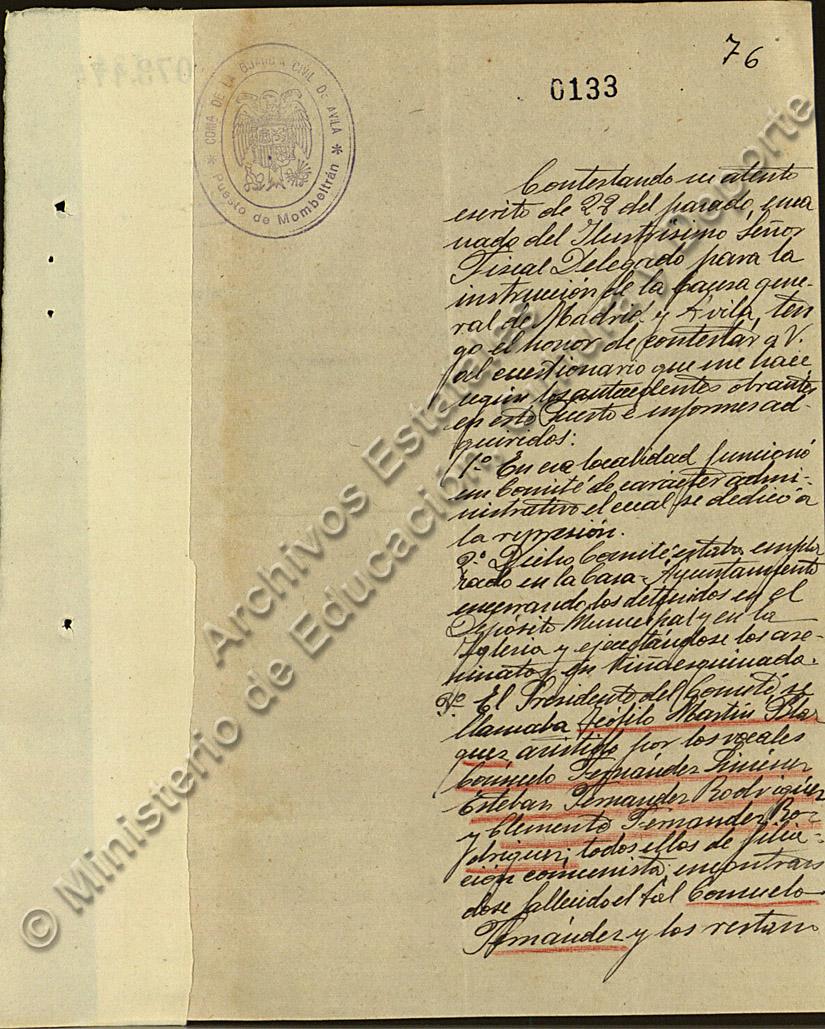 76
0133
COMA DE LA GUARDIA CIVIL DE AVILA
Puesto de Mombeltrán
Contestando su atento
escrito de 28 del pasado, ema
nado del Ilustrísimo Señor
Fiscal Delegado para la
instrucción de la Causa gene-
ral de Madrid y Avila, ten
go el honor de contestar a V.
al cuestionario que me hace
según los antecedentes obrantes
en este Puesto e informes ad-
quiridos:
1º En esa localidad funcionó
un Comité de carácter admi-
nistrativo el cual se dedicó a
la represión.
2º Dicho Comité estaba empla
zado en la Casa-Ayuntamiento
encerrando los detenidos en el
Depósito Municipal y en la
Iglesia y ejecutándose los ase-
sinatos en
3º El Presidente del Comité se
llamaba Teófilo Martín Blaz
quez asistido por los vocales
Consuelo Fernández Jiménez
Esteban Fernandez Rodriguez
y Clemente Fernandez Ro-
driguez; todos ellos de filia-
ción comunista, encontran
dose fallecido el tal Consuelo
Fernández y los restan
© Ministerio de Educación, Cultura y Deporte
Archivos Estatales